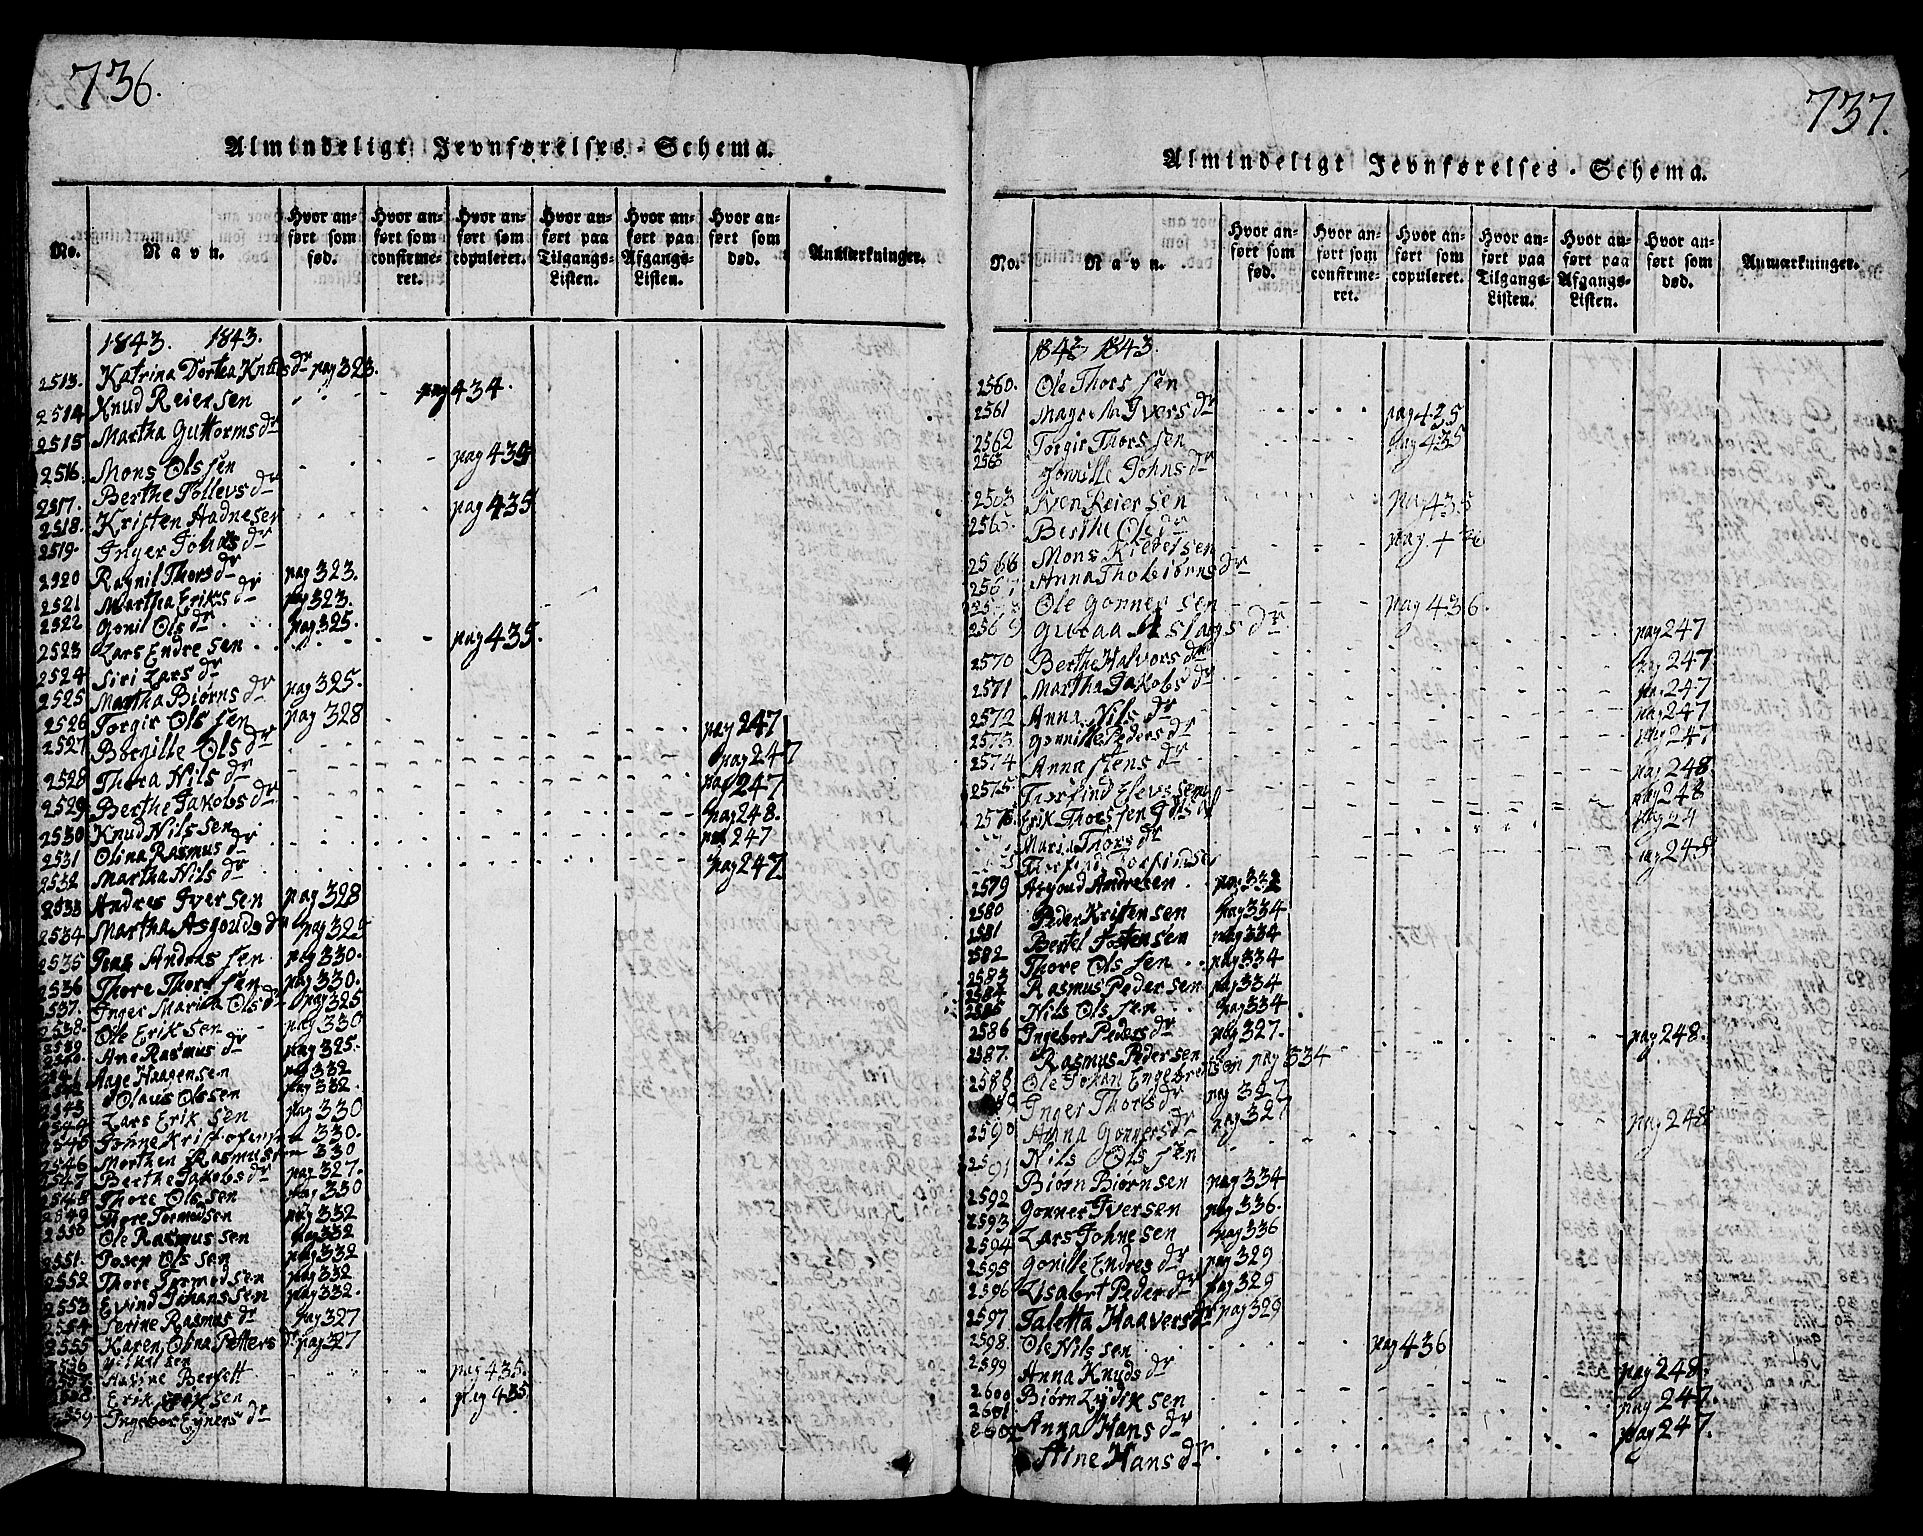 736.
Almindeligt Jevnførelses-Schema.
No. Navn. Hvor anført som fød. Hvor anført som confirmeret. Hvor anført som copuleret. Hvor anført paa Tilgangs-Listen. Hvor anført paa Afgangs-Listen. Hvor anført som død. Anmærkninger.
1843. 1843.
2513. Katrina Dortea Knuds dr pag 323.
2514 Knud Reiersen pag 434.
2515 Martha Guttorms dr
2516. Mons Olssen pag 435
2517. Berthe Tollevs dr
2518. Kristen Aadnesen pag 435
2519. Inger Johns dr
2520 Ragnil Thors dr pag 323.
2521 Martha Eriks dr pag 323.
2522 Gonil Ols dr pag 325.
2523 Lars Endresen pag 435.
2524 Siri Lars dr
2525 Martha Biørns dr pag 325.
2526 Torgir Olssen pag 328
2527 Borgille Ols dr pag 247
2528 Thora Nils dr pag 247
2529 Berthe Jakobs dr pag 247
2530 Knud Nilssen pag 248.
2531 Olina Rasmus dr pag 247
2532 Martha Nils dr pag 247
2533 Andres Iversen pag 328
2534 Martha Asgouds dr pag 325
2535 Andres sen pag 330.
2536 Thore Thorssen pag 330.
2537. Inger Marita Ols dr pag 325
2538. Ole Eriksen pag 330
2539 Ane Rasmus dr pag 325.
Aage Haagensen pag 332
Olaus Olssen pag 332.
2543 Lars Eriksen pag 330
2544 Tønne Kristofersen 330.
2546 Morthen Rasmussen 330
2547 Berthe Jakobs dr pag 327.
2548 Thore Olssen pag 330
2549 Thore Tormodsen pag 332
2550 Ole Rasmussen pag 332
2551. Posen Olssen pag 332
2552 Thore Tormodsen pag 332
2553 Eivind Johanssen pag 332.
2554 Serine Rasmus dr pag 327
2555 Karen Olina Petters dr pag 327
2556
Malene Bertett pag 435.
Erik Eriksen pag 435
2559 Ingebor Eyners dr
737.
Almindeligt Jevnførelses-Schema.
No. Navn. Hvor anført som fød. Hvor anført som confirmeret. Hvor anført som copuleret. Hvor anført paa Tilgangs-Listen. Hvor anført paa Afgangs-Listen. Hvor anført som død. Anmærkninger.
1843 1843.
2560. Ole Thorssen
2561 Magrethe Ivers dr pag 435
2562 Torgir Thorssen pag 435
2563 Gonnille Johns dr
2563 Sven Reiersen pag 435
2565. Berthe Ols dr pag
2566 Mons Kjedelsen
2567 Anna Thobiørns dr
2568 Ole Gonnersen pag 436.
2569 Guroa Aslags dr pag 247
2570 Berthe Halvors dr pag 247
2571 Martha Jakobs dr pag 247
2572 Anna Nils dr pag 247
2573. Gonnille Peders dr pag 247
2574 Anna Stens dr pag 248.
2575. Torfind Elevssen pag 248
2576 Erik Thorssen pag 24
Maria Thors dr pag 248
Thorfind Torfindsen
2579 Asgoud Andresen pag 332
2580 Peder Kristensen pag 334
2581 Bertel Jostensen pag 334
2582 Thore Olssen pag 334
2583 Rasmus Pedersen pag 334
2585 Nils Olssen pag 334
2586 Ingebor Peders dr pag 327. pag 248.
2587. Rasmus Pedersen pag 334
2588 Ole Johan Engebretsen pag 334
Inger Thors dr pag 327
2590 Anna Gonners dr pag 327 pag 248
2591 Nils Olssen
Biørn Biørnsen pag 334
2592 Gonner Iversen pag 336.
2593 Lars Johnesen pag 336
2594 Gonille Endres dr pag 329
2595
2596 Lisabet Peder dr pag 329
2597 Taletta Haavers dr pag 329
2598. Ole Nilssen pag 436
2599 Anna Knuds dr pag 248.
2600 Biørn Lydiksen pag 247.
2601 Anna Hans dr pag 247.
2602 Stine Hans dr